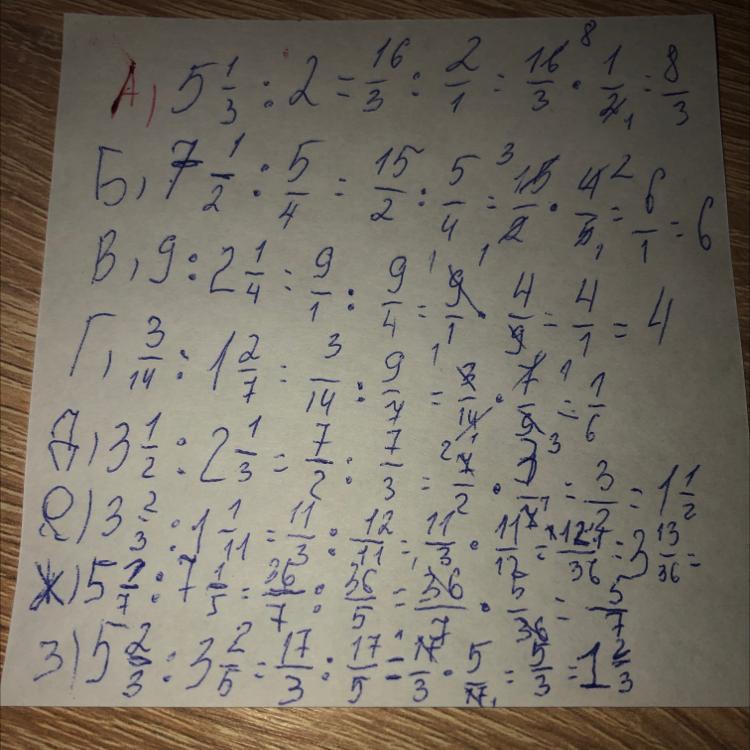 А) 5 1/3 : 2 = 16/3 : 2/1 = 16/3 8 · 1/2 1 = 8/3
Б) 7 1/2 : 5/4 = 15/2 : 5/4 = 3 15/2 1 · 4/5 2 1 = 6/1 = 6
В) 9 : 2 1/4 = 9/1 : 9/4 = 1 9/1 · 4/9 1 = 4/1 = 4
Г) 3/14 : 1 2/7 = 3/14 : 9/7 = 1 3/14 2 · 7/9 1 3 = 1/6
Д) 3 1/2 : 2 1/3 = 7/2 : 7/3 = 1 7/2 · 3/7 1 = 3/2 = 1 1/2
Е) 3 2/3 : 1 1/11 = 11/3 : 12/11 = 11/3 · 11/12 = 121/36 = 3 13/36 =
Ж) 5 1/7 : 7 1/5 = 36/7 : 36/5 = 36/7 · 5/36 = 5/7
З) 5 2/3 : 3 2/5 = 17/3 : 17/5 = 1 17/3 · 5/17 1 = 5/3 = 1 2/3